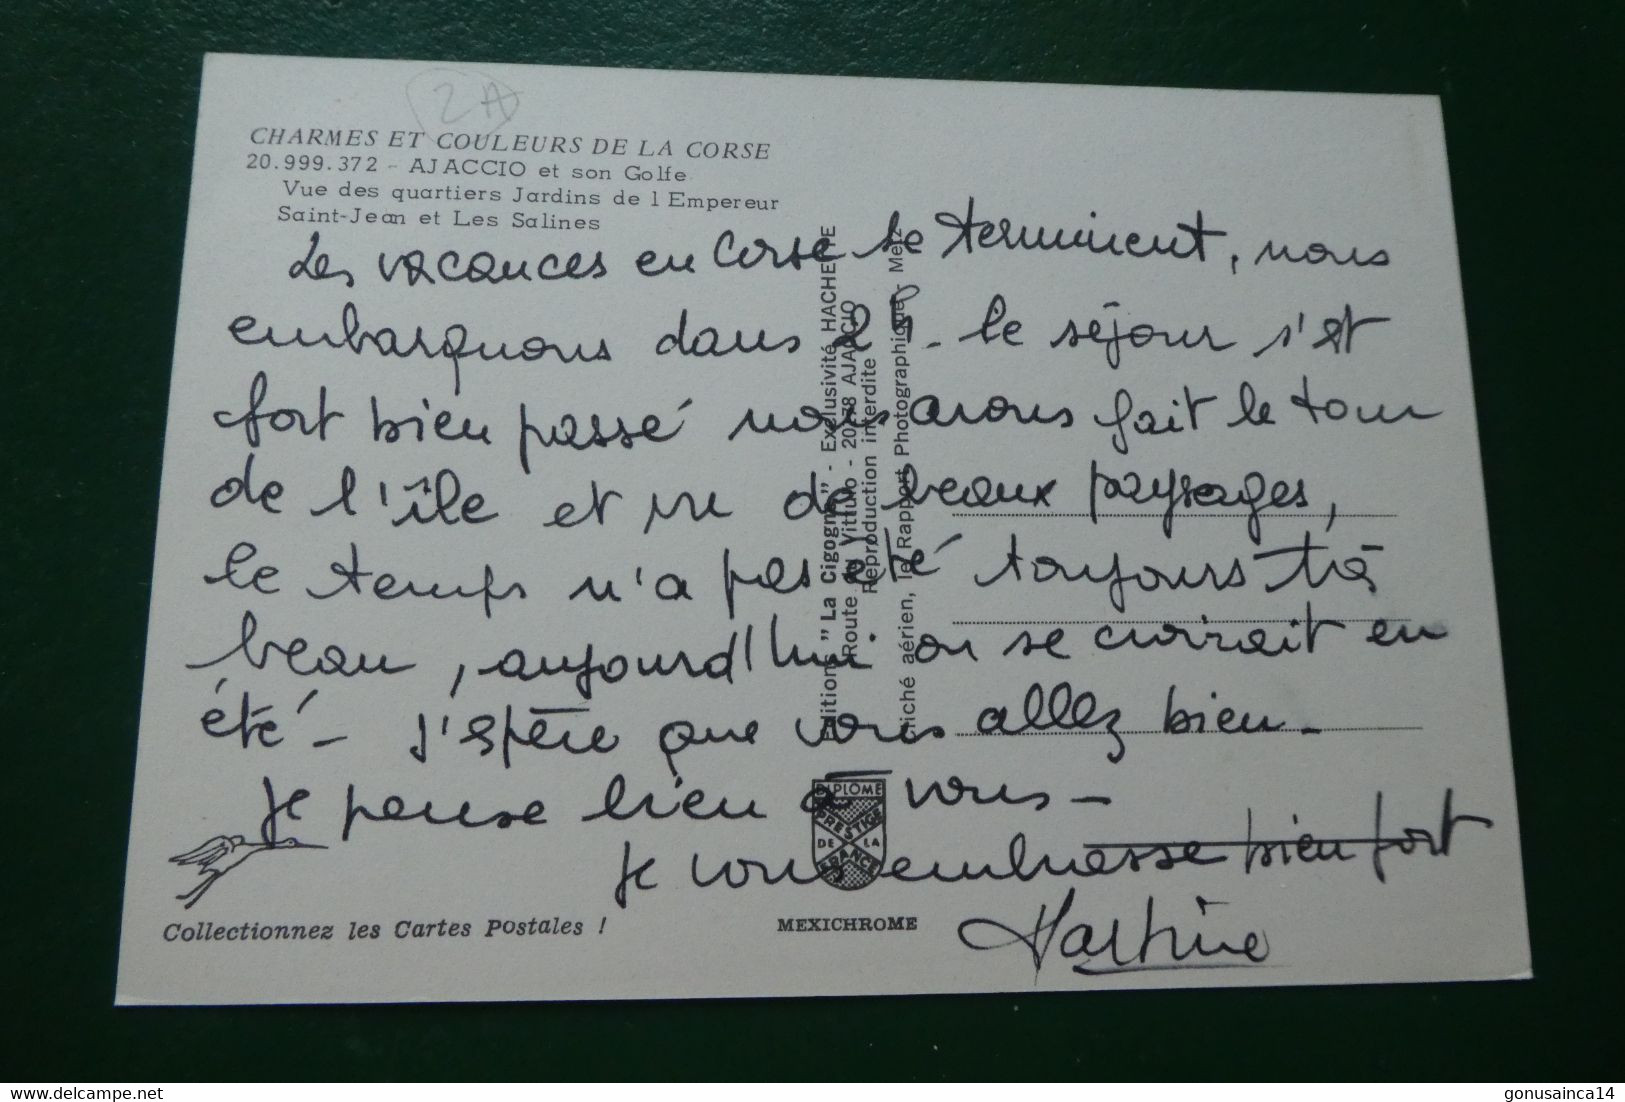 2A
CHARMES ET COULEURS DE LA CORSE
20.999.372 - AJACCIO et son Golfe
Vue des quartiers Jardins de l Empereur
Saint-Jean et Les Salines
Les vacances en Corse se terminent, nous
embarquons dans 2h - le séjour s'est
fort bien passé nous avons fait le tour
de l'île et vu de beaux paysages,
le temps n'a pas été toujours très
beau, aujourd'hui on se croirait en
été - J'espère que vous allez bien -
Je pense bien à vous -
Je vous embrasse bien fort
Martine
Editions "La Cigogne" - Exclusivité HACHETTE
Route du Vittulo - 20178 AJACCIO
Reproduction interdite
Cliché aérien, le Rapport Photographique - Metz
DIPLOME
PRESTIGE
DE LA
FRANCE
Collectionnez les Cartes Postales !
MEXICHROME
delcampe.net
gonusainca14